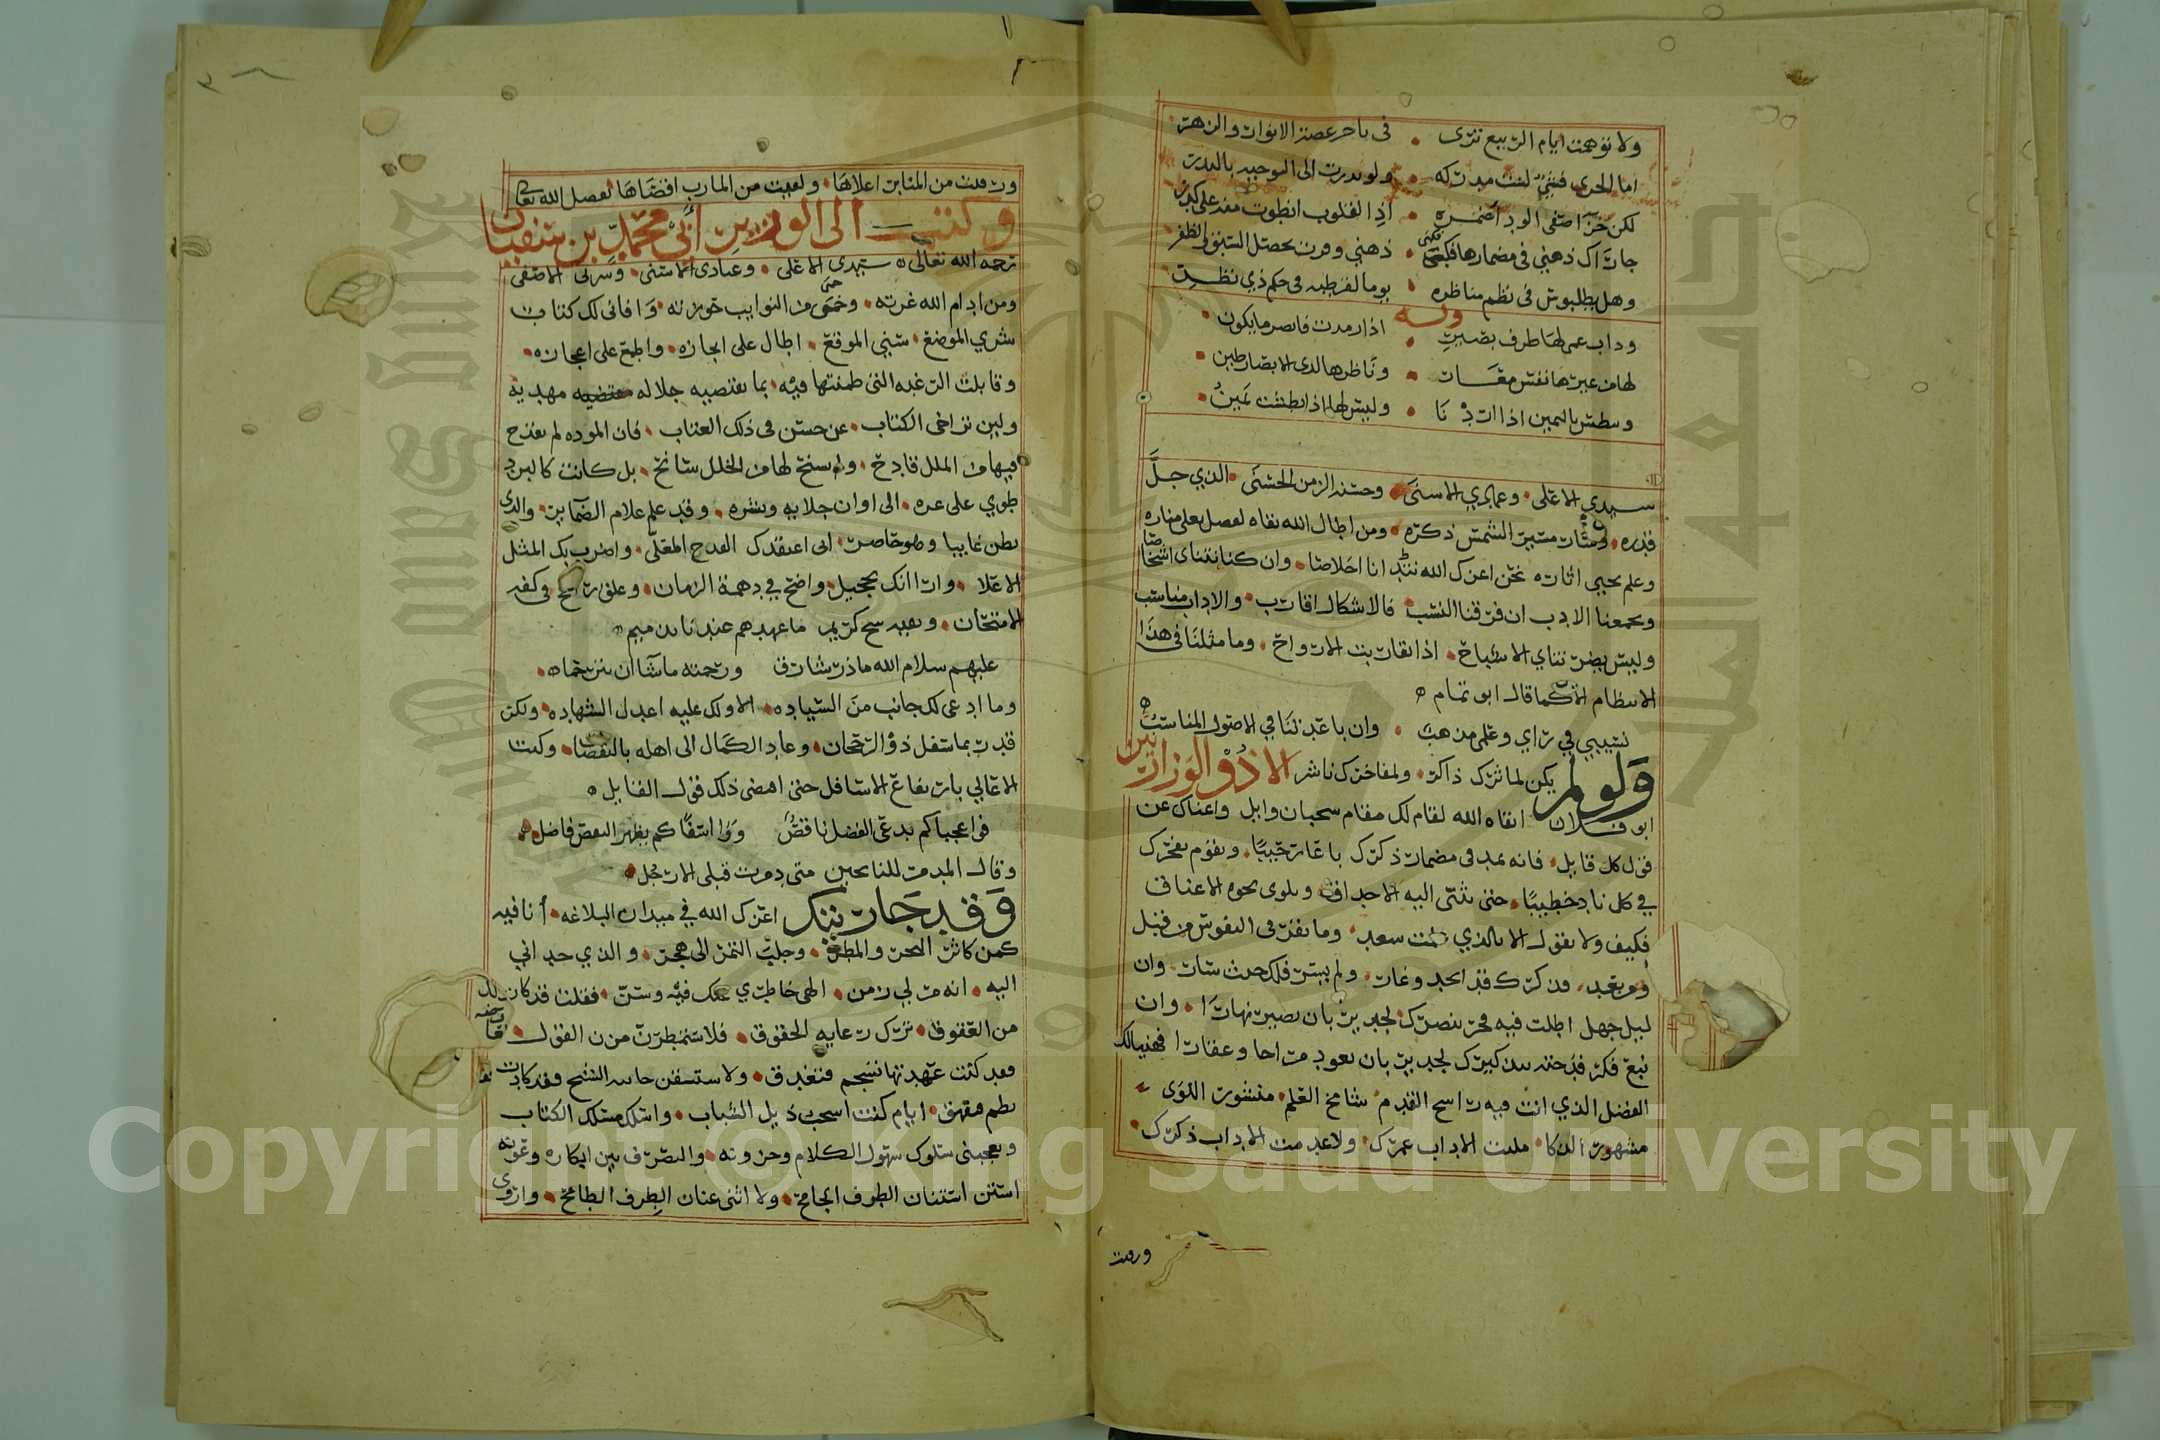 ولا توهمت ايام الربيع ترى • في ناجر غضة الانوار والزهر
اما الجزى فشي لست مدركه • ولو بدرت الى التوجيه بالبدر
لكن جزا صفى الود اضمره • اذ القلوب انطوت منه على كدر
جاراك ذهني في مضمارها فكبى • ذهني وفزت بخصل السبق والظفر
وهل بطليوس في نظم مناظره • يوما لقرطبه في حكم ذي نظر
وله
وذات عمى لها طرف بصير • اذا رمدت فابصر ما يكون
لها من غيرها نفس معار • وناظرها لدى الابصار طين
وتبطش باليمين اذا اردنا • وليس لها اذا بطشت يمين
سيدي الاعلى • وعمادي الاسنى • وحسنه الزمن الحسنى • الذي جل
قدره • وسار مسير الشمس ذكره • ومن اطال الله بقاه لفضل يعلى مناره
وعلم يحيي اثاره نحن اعزك الله نتدانا اخلاصا • وان كنا نتناى اشخاصا
ويجمعنا الادب ان فرقنا النسب • فالاشكال اقارب • والاداب مناسب
وليس يضر تناي الاشباح • اذا تقاربت الارواح • وما مثلنا في هذا
الانتظام الا كما قال ابو تمام
نسيبي في راي وعلمى مذهب • وان باعدتنا في الاصول المناسب
ولو لم يكن لماثرك ذاكر • ولمفاخرك ناشر الا ذو الوزارتين
ابو فلان ابقاه الله لقام لك مقام سحبان وايل واغناك عن
قول كل قايل • فانه يمد في مضمار ذكرك باعا رحيبا • ويقوم بفخرك
في كل ناد خطيبا • حتى يثنى اليه الاحداق • ويلوى نحوه الاعناق
فكيف ولا يقول الا بالذي علمت سعد • وما تقرر في النفوس من قبل
ومن بعد • فذكرك قد انجد وغار • ولم يسر فلك حيث سار وان
ليل جهل اطلت فيه فجر تبصرك لجدير بان يصير نهارا • وان
نبع فكر قدحته بتذكيرك لجدير بان يعود مرخا وعفارا فهنيا لك
الفضل الذي انت فيه راسخ القدم • شامخ العلم • منشور اللوى
مشهور الذكا • مليت الاداب عمرك • ولا عدمت الاداب ذكرك •
ورقيت
ورقيت من المنابر اعلاها • ولقيت من المارب اقصاها بفضل الله تعالى
وكتب الى الوزير أبي محمد بن سفيان
رحمه الله تعالى سيدي الاعلى • وعمادي الاسنى • وسرى الاصفى
ومن ادام الله عزته • وحمى من النوايب حوزته • وافاني لك كتاب
سري الموضع • سني الموقع • اطال على ايجازه • واطمع على اعجازه •
وقابلت الرغبه التي ضمنتها فيه • بما يقتضيه جلاله مهديه
ولين تراخى الكتاب • عن حسن في ذلك العتاب • فان الموده لم يقدح
فيها من الملل قادح • ولا سنح لها من الخلل سانح • بل كانت كالبرد
طوي على غره • الى اوان جلايه ونشره • وقد علم علام الضماير • والذي
بطن غايبا وهو حاضر • اني اعتقدك القدح المعلى • واضرب بك المثل
الاعلا • وارا انك تحجيل واضح في دهمة الزمان • وعلق ربح في كفه
الامتحان • وبقيه سح كريم ما عهدهم عندنا بذميم
عليهم سلام الله ما ذر شارق ورحمته ما شا ان يترحما •
وما ادعى لك جانب من السياده • الا ولك عليه اعدل الشهاده • ولكن
قد ربما سفل ذو الرجحان • وعاد الكمال الى اهله بالنقصان • وكبت
الاعالي بارتفاع الاسافل حتى امضى ذلك قول القايل
فواعجبا كم يدعى الفضل ناقص ووا اسفا كم يظهر النقص فاضل
وقال المبدم للنايحين متى دمت قبلي الارجل
وقد جاريتك اعزك الله في ميدان البلاغه • أنا فيه
كمن كاثر البحر والمطر • وجلب التمر الى هجر • والذي حداني
اليه • انه مر لي زمن • الهى خاطري عنك فيه وسن • فقلت قد كان لك
من العقوق • ترك رعايه الحقوق • فلا ستمطرن مزن القول •
فقد كنت عهدتها تسجم فتغدق • ولا ستسقن حابه الشيح وقد كادت
بطم فقهق • ايام كنت اسحب ذيل الشباب • واسلك مسلك الكتاب
ويعجبني سلوك سهول الكلام وحزونه • والتصرف بين ابكاره وعونه
استن استنان الطرف الجامح • ولا اثني عنان الطرف الطامح • واروي
Copyright © King Saud University